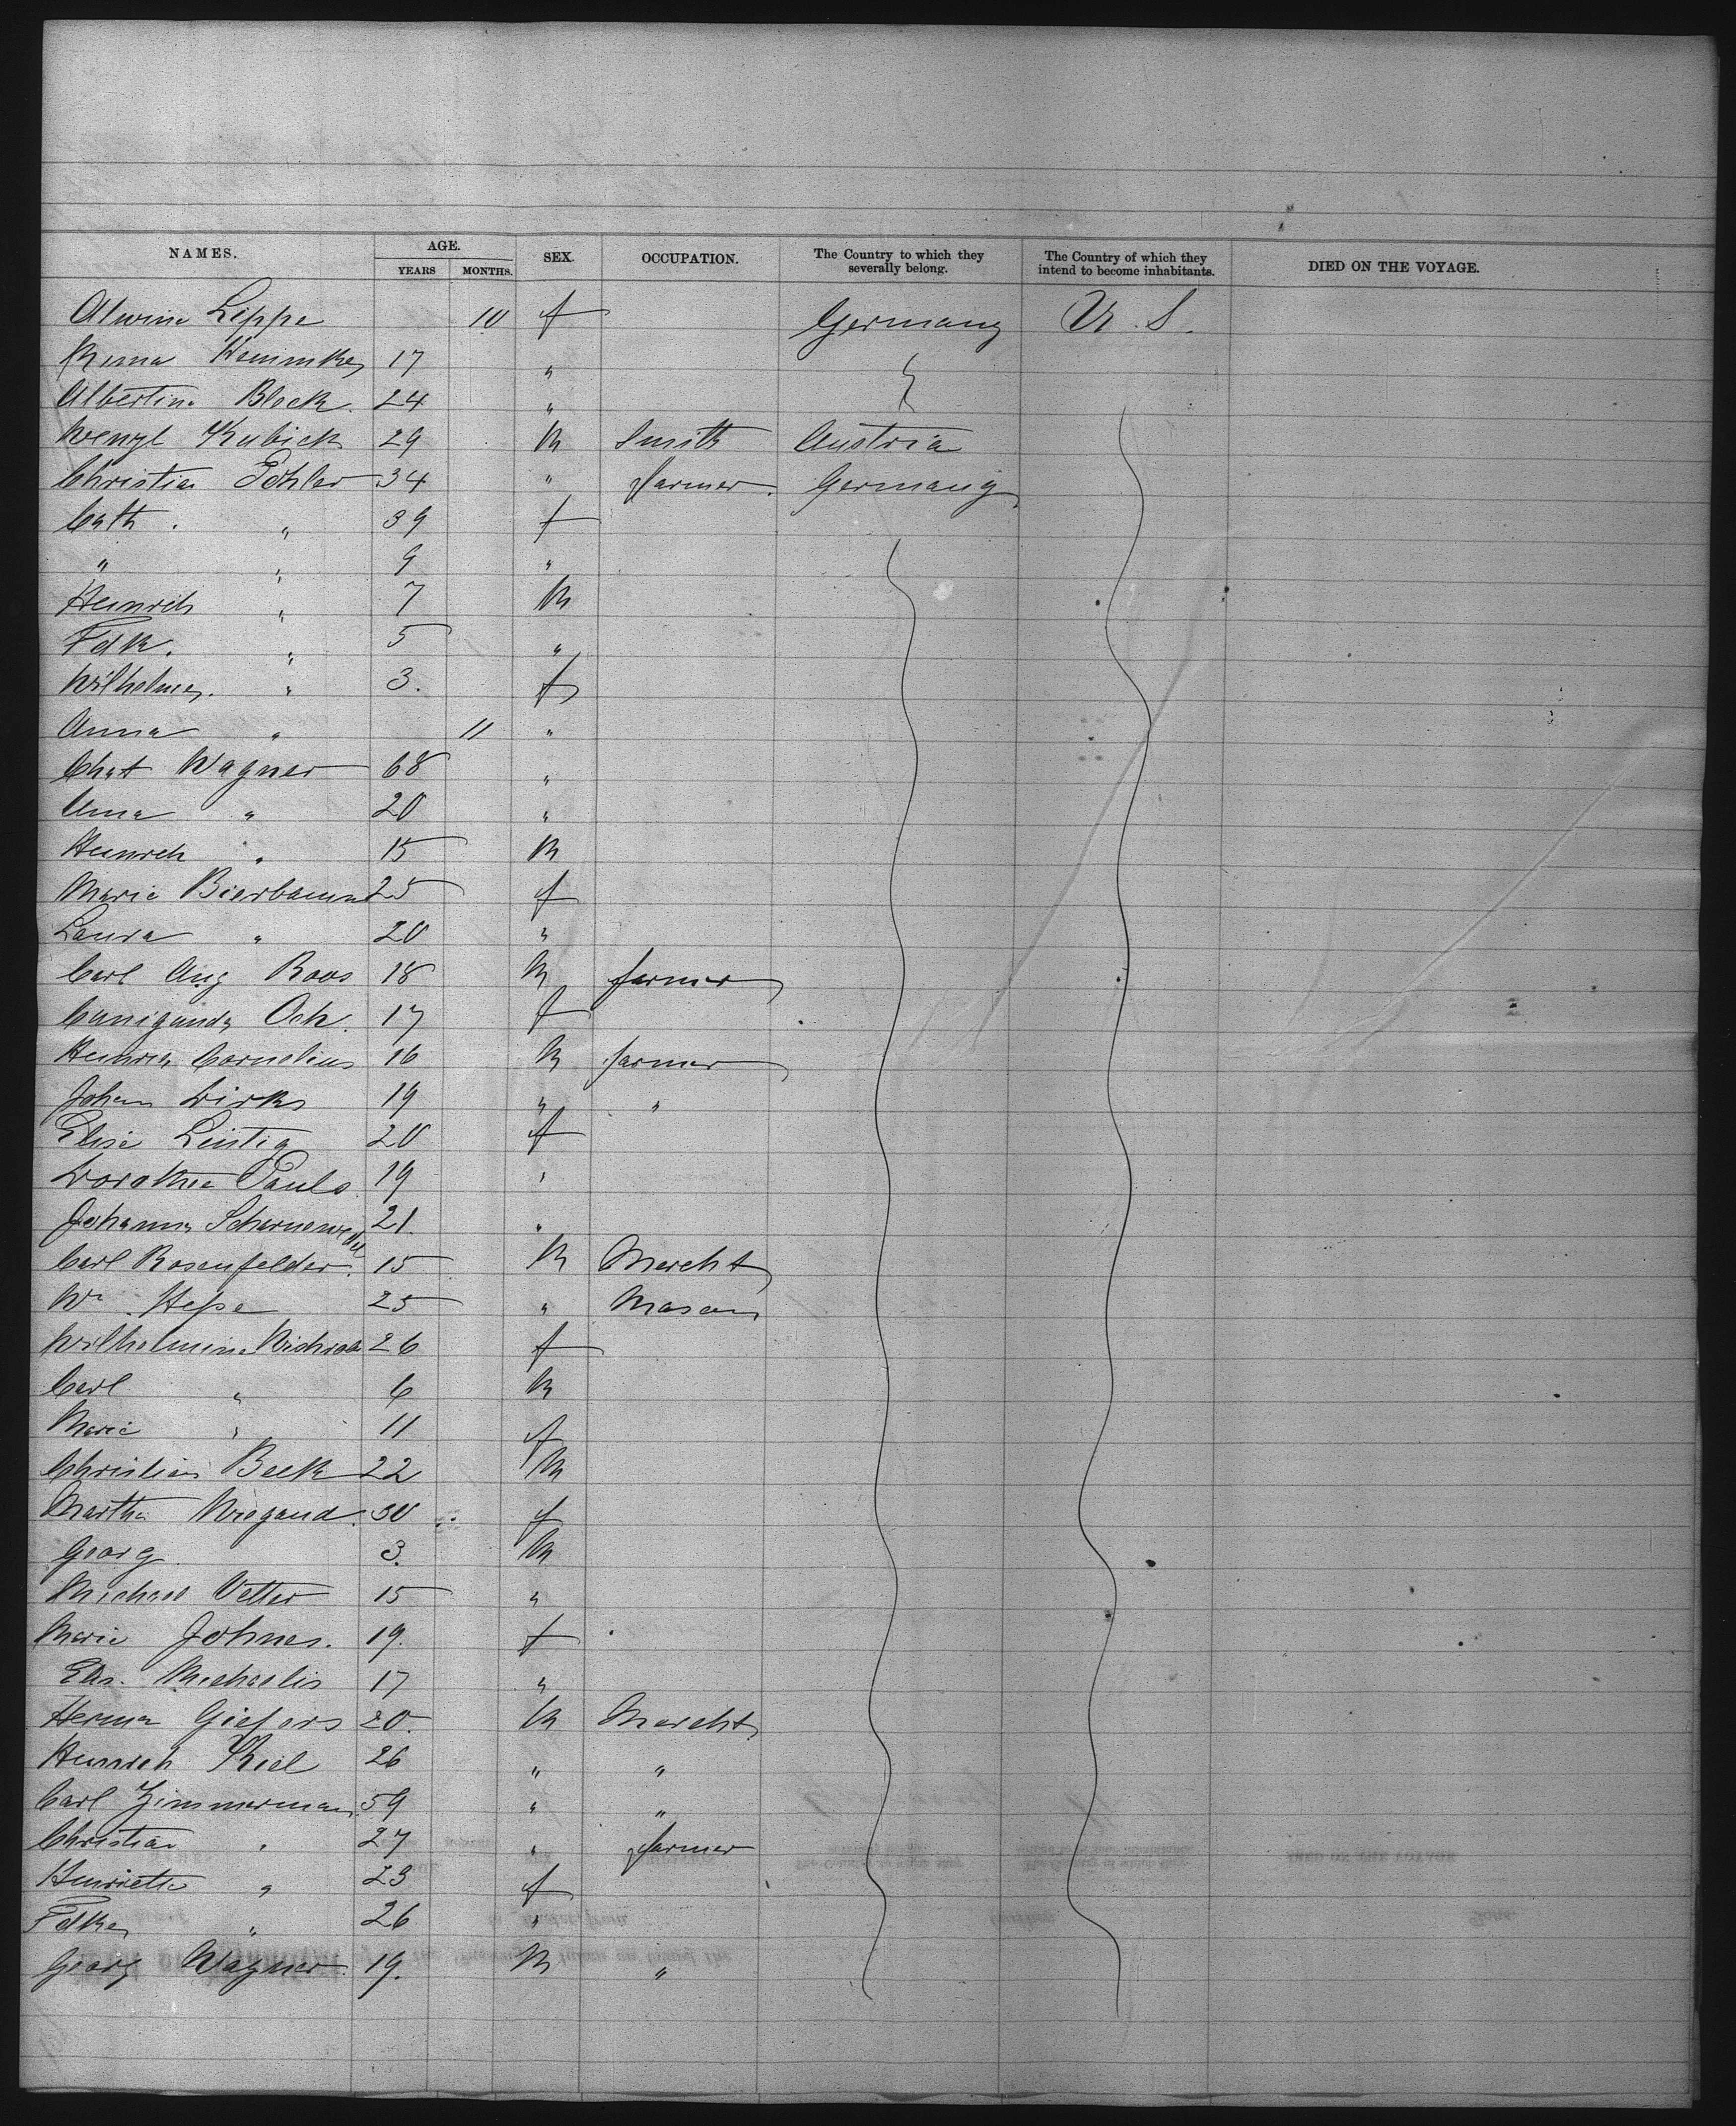 NAMES. AGE. SEX. OCCUPATION. The Country to which they severally belong. The Country of which they intend to become inhabitants. DIED ON THE VOYAGE.
YEARS MONTHS.
Alwine Lippe 10 f Germany U. S.
17 "
Albertine Block. 24 "
Wenzl Kubick 29 M Smith Austria
Christian Döhler 34 " farmer. Germany
Cath. " 39 f
" " 9 "
Heinrich " 7 M
Fdk. " 5 "
Wilhelmine. " 3. f
Anna " 11 "
Chat Wagner 68 "
Anna " 20 "
Heinrich " 15 M
Marie Bierbaum 25 f
Laura " 20 "
Carl Aug Roos 18 M farmer
Cunigunda Och. 17 f
Heinrich Cornelius 16 M farmer
Johann Dirks 19 " "
Elise Leistig 20 f
Dorothea Pauls 19 "
Johanna 21. "
Carl Rosenfelder. 15 M Mercht
Wm. Hesse 25 " Mason
Wilhelmine 26 f
Carl " 6 M
Marie " 11 f
Christian Beck 22 M
Martha Wiegand. 30 f
Georg 3. M
Michael Vetter 15 "
Marie Johnes. 19. f
Elis. Michaelis 17 "
Herman Giefers 20. M Mercht
Heinrich Kiel 26 " "
Carl Zimmerman 59 " "
Christian " 27 " farmer
Henriette " 23 f
Fdke " 26 "
Georg Wagner. 19. M "